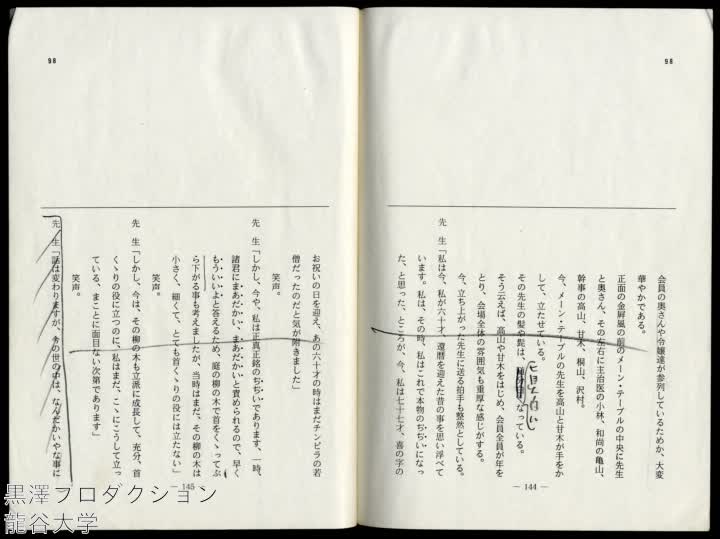 98
会員の奥さんや令嬢達が参列しているためか、大変
華やかである。
正面の金屏風の前のメーン・テーブルの中央に先生
と奥さん、その左右に主治医の小林、和尚の亀山、
幹事の高山、甘木、桐山、沢村。
今、メーン・テーブルの先生を高山と甘木が手をか
して、立たせている。
その先生の髪や髭は、なっている。
そう云えば、高山や甘木をはじめ、会員全員が年を
とり、会場全体の雰囲気も重厚な感じがする。
今、立ち上がった先生に送る拍手も整然としている。
先 生「私は今、私が六十才、還暦を迎えた昔の事を思い浮べて
います。私は、その時、私はこれで本物のぢぢいになっ
た、と思った、ところが、今、私は七十七才、喜の字の
― 144 ―
98
お祝いの日を迎え、あの六十才の時はまだチンピラの若
僧だったのだと気が附きました」
笑声。
先 生「しかし、今や、私は正真正銘のぢぢいであります、一時、
諸君にまあだかい、まあだかいと責められるので、早く
もういいよと答えるため、庭の柳の木で首をくゝってぶ
ら下がる事も考えましたが、当時はまだ、その柳の木は
小さく、細くて、とても首くゝりの役には立たない」
笑声。
先 生「しかし、今は、その柳の木も立派に成長して、充分、首
くゝりの役に立つのに、私はまだ、こゝにこうして立っ
ている、まことに面目ない次第であります」
笑声。
先 生「話は変わりますが、今の世の中は、なんだかいやな事に
― 145 ―
黒澤プロダクション
龍谷大学